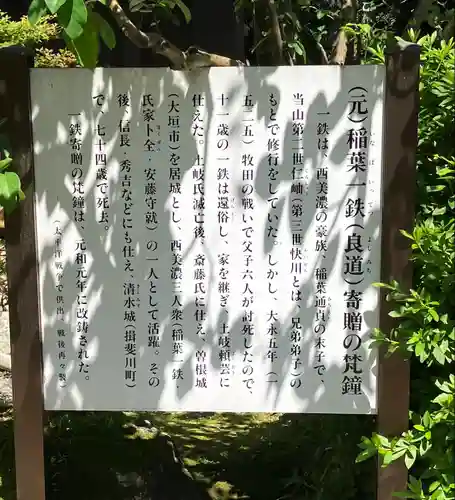 (元)稲葉一鉄(良道)寄贈の梵鐘
いなばいってつ
よしみち
一鉄は、西美濃の豪族、稲葉通貞の末子で、
当山第二世仁岫(第三世快川とは、兄弟弟子)の
もとで修行をしていた。しかし、大永五年(一
五二五)牧田の戦いで父子六人が討死したので、
十一歳の一鉄は還俗し、家を継ぎ、土岐頼芸に
仕えた。土岐氏滅亡後、斎藤氏に仕え、曽根城
(大垣市)を居城とし、西美濃三人衆(稲葉一鉄、
氏家卜全・安藤守就)の一人として活躍。その
後、信長、秀吉などにも仕え、清水城(揖斐川町)
で、七十四歳で死去。
一鉄寄贈の梵鐘は、元和元年に改鋳された。
(太平洋戦争で供出。戦後再々製)